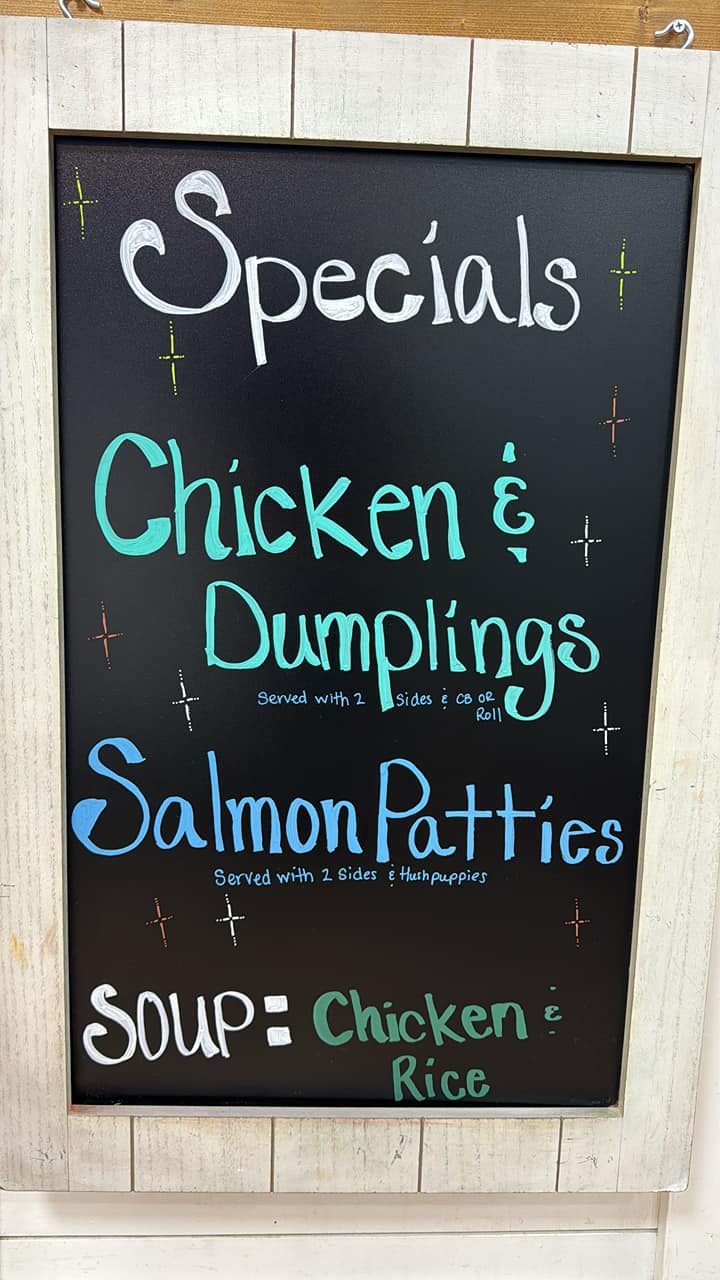 Specials
Chicken &
Dumplings
Served with 2 Sides & CB OR
Roll
Salmon Patties
Served with 2 Sides & Hushpuppies
SOUP: Chicken &
Rice